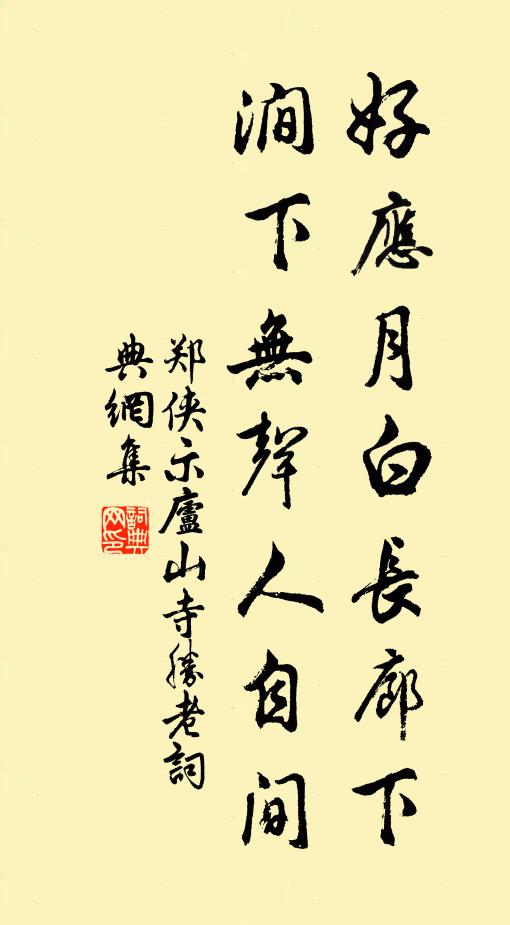 好應月白長廊下
澗下無聲人自间
郑侠示廬山寺勝老詞
典網集
詞典
网印